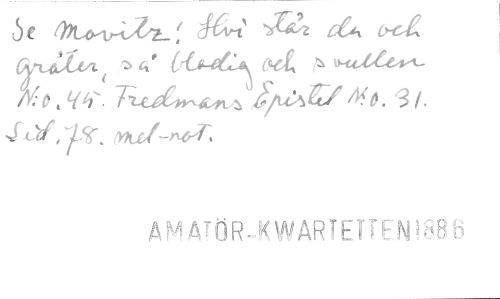 Se Movitz! Hvi står du och
gråter, så blodig och svullen
N:o. 45. Fredmans Epistel N:o. 31.
Sid. 78. mel-not.
AMATÖR-KWARTETTEN 1886